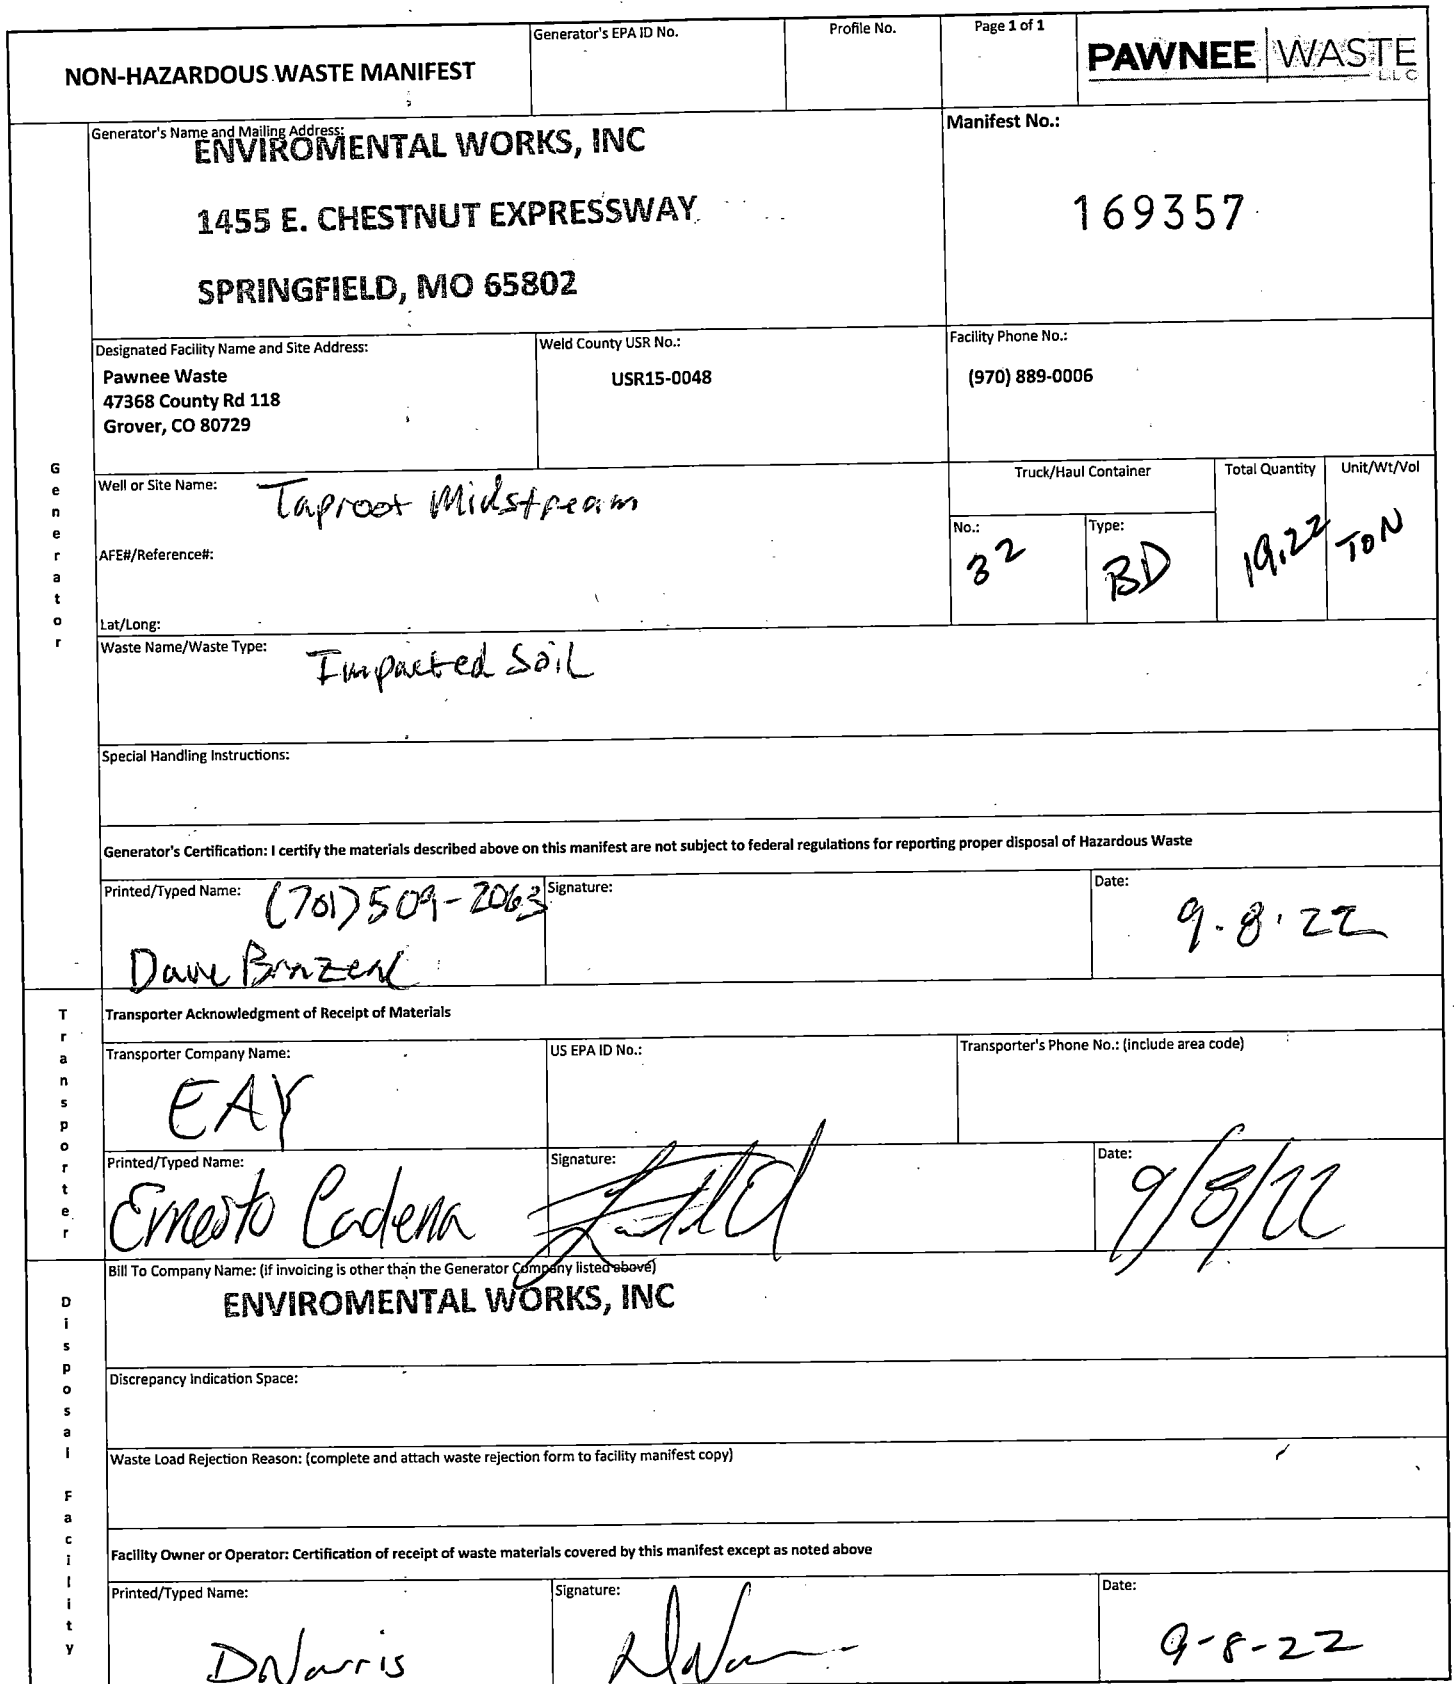 NON-HAZARDOUS WASTE MANIFEST
Generator's EPA ID No.
Profile No.
Page 1 of 1
PAWNEE WASTE
LLC
Generator's Name and Mailing Address:
ENVIROMENTAL WORKS, INC
1455 E. CHESTNUT EXPRESSWAY
SPRINGFIELD, MO 65802
Manifest No.:
169357
Designated Facility Name and Site Address:
Pawnee Waste
47368 County Rd 118
Grover, CO 80729
Weld County USR No.:
USR15-0048
Facility Phone No.:
(970) 889-0006
Generator
Well or Site Name: Taproot Midstream
AFE#/Reference#:
Lat/Long:
Truck/Haul Container
No.:
32
Type:
BD
Total Quantity
19.22
Unit/Wt/Vol
TON
Waste Name/Waste Type: Impacted Soil
Special Handling Instructions:
Generator's Certification: I certify the materials described above on this manifest are not subject to federal regulations for reporting proper disposal of Hazardous Waste
Printed/Typed Name: (701) 509-2063
Dave
Signature:
Date:
9.8.22
Transporter
Transporter Acknowledgment of Receipt of Materials
Transporter Company Name:
EAY
US EPA ID No.:
Transporter's Phone No.: (include area code)
Printed/Typed Name:
Ernesto Cadena
Signature:
Date:
9/8/22
Disposal Facility
Bill To Company Name: (if invoicing is other than the Generator Company listed above)
ENVIROMENTAL WORKS, INC
Discrepancy Indication Space:
Waste Load Rejection Reason: (complete and attach waste rejection form to facility manifest copy)
Facility Owner or Operator: Certification of receipt of waste materials covered by this manifest except as noted above
Printed/Typed Name:
DNorris
Signature:
Date:
9-8-22